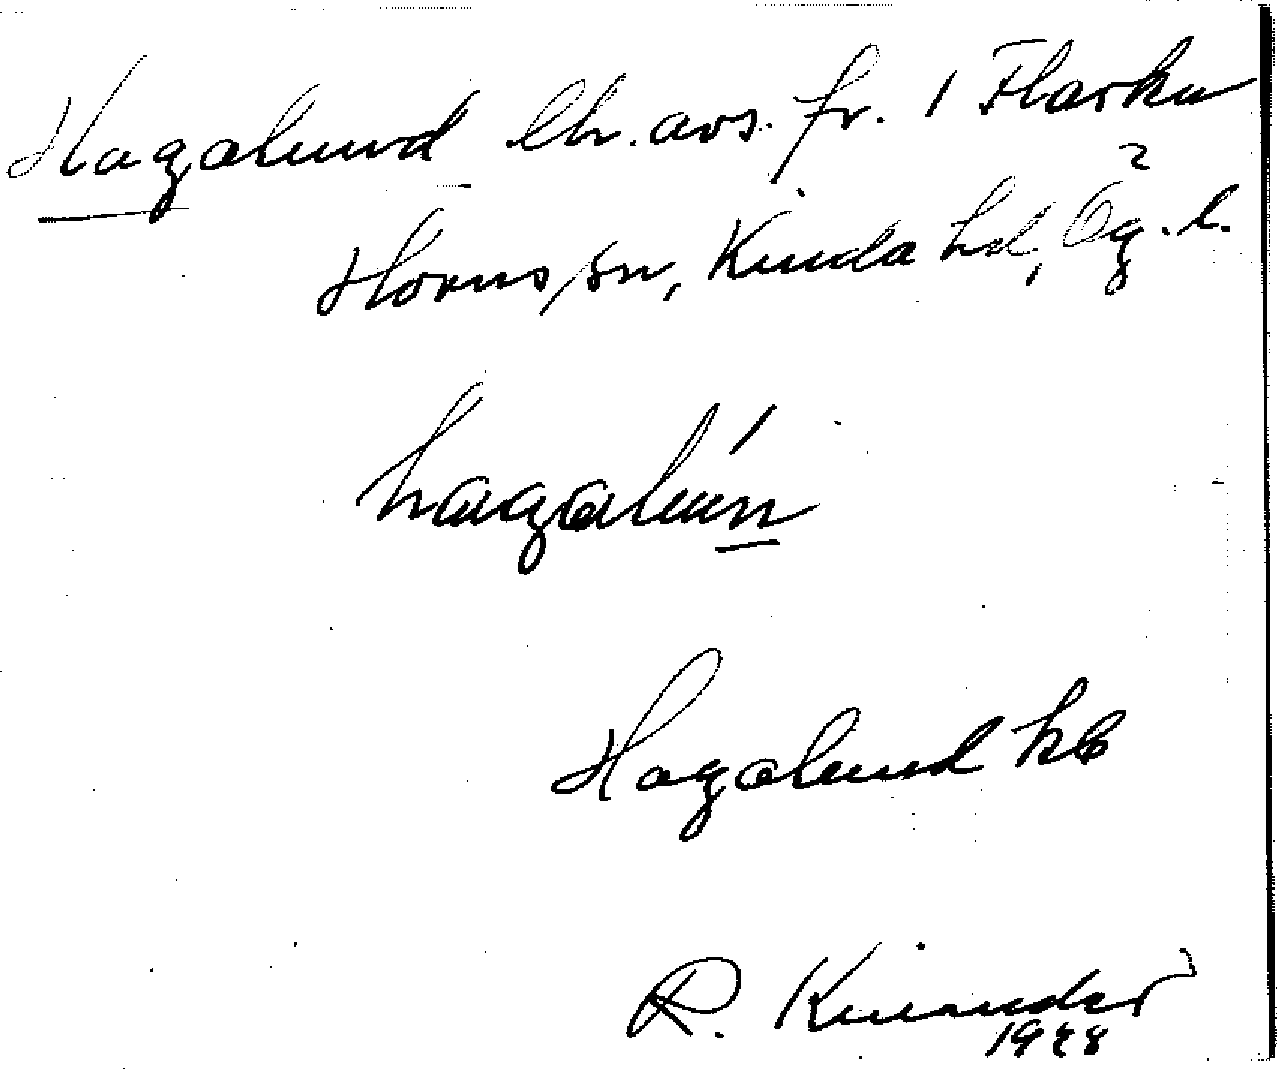 Hagalund lhr. avs. fr. 1 Flarka
Horns sn, Kinda hd, Ög. l.
hagalún
Hagalund hb
R. Kinander
1928